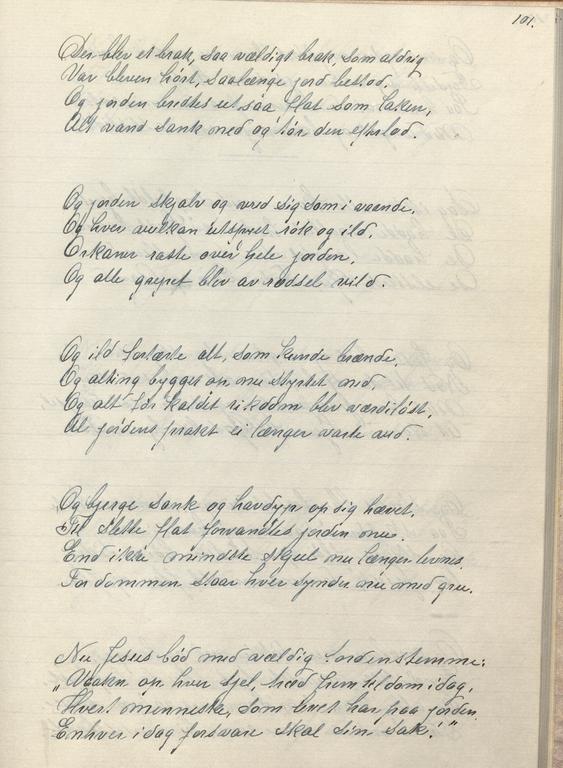 101.
Der blev et brak, saa vældigt brak, som aldrig
Var bleven hørt, saalænge jord bestod.
Og jorden bredtes ut saa flat som laken,
Alt vand sank ned og tør den efterlod.
Og jorden skjalv og vred sig som i vaande,
Og hver vulkan utspyet røk og ild.
Orkaner raste over hele jorden,
Og alle grepet blev av rædsel vild.
Og ild fortærte alt, som kunde brænde,
Og alting bygget op nu styrtet ned,
Og alt før kaldet rikdom blev værdiløst,
Al jordens prakt ei længer varte ved.
Og bjerge sank og havdyp op sig hævet,
Til slette flat forvandles jorden nu.
End ikke mindste skjul nu længer levnes
For dommen staar hver synder nu med gru.
Nu Jesus bød med vældig tordenstemme:
„Vaakn op hver sjel, træd frem til dom idag,
Hvert menneske, som levet har paa jorden
Enhver idag forsvare skal sin sak!"